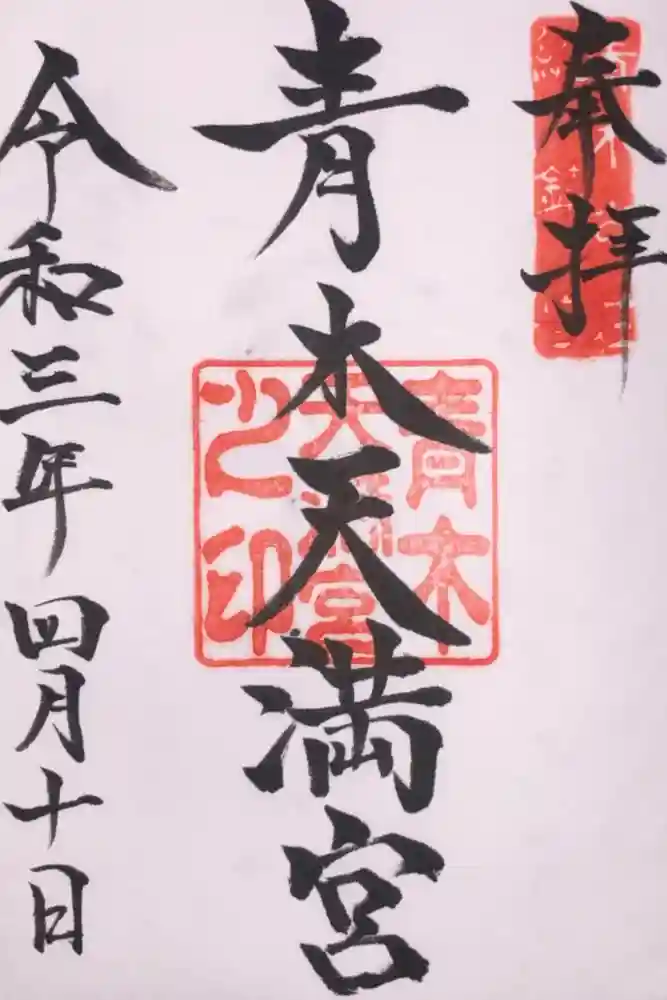 奉拝
青木天満宮
青木天満宮之印
令和三年四月十日